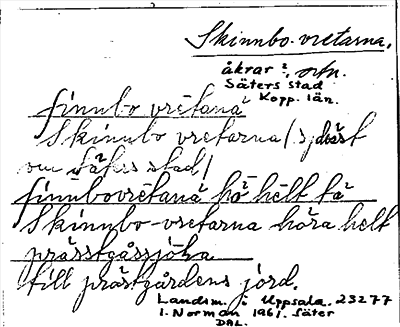 Skinnbo-vretarna,
åkrar?, ortn.
Säters stad
Kopp. län.
finnbo vretana
Skinnbo vretarna (sydväst
om Säters stad)
finnbovretana hö helt ta
Skinnbo-vretarna höra helt
prässtgåssjöka
till prästgårdens jord.
Landsm. i Uppsala. 23277
I. Norman 1961. Säter
DAL.